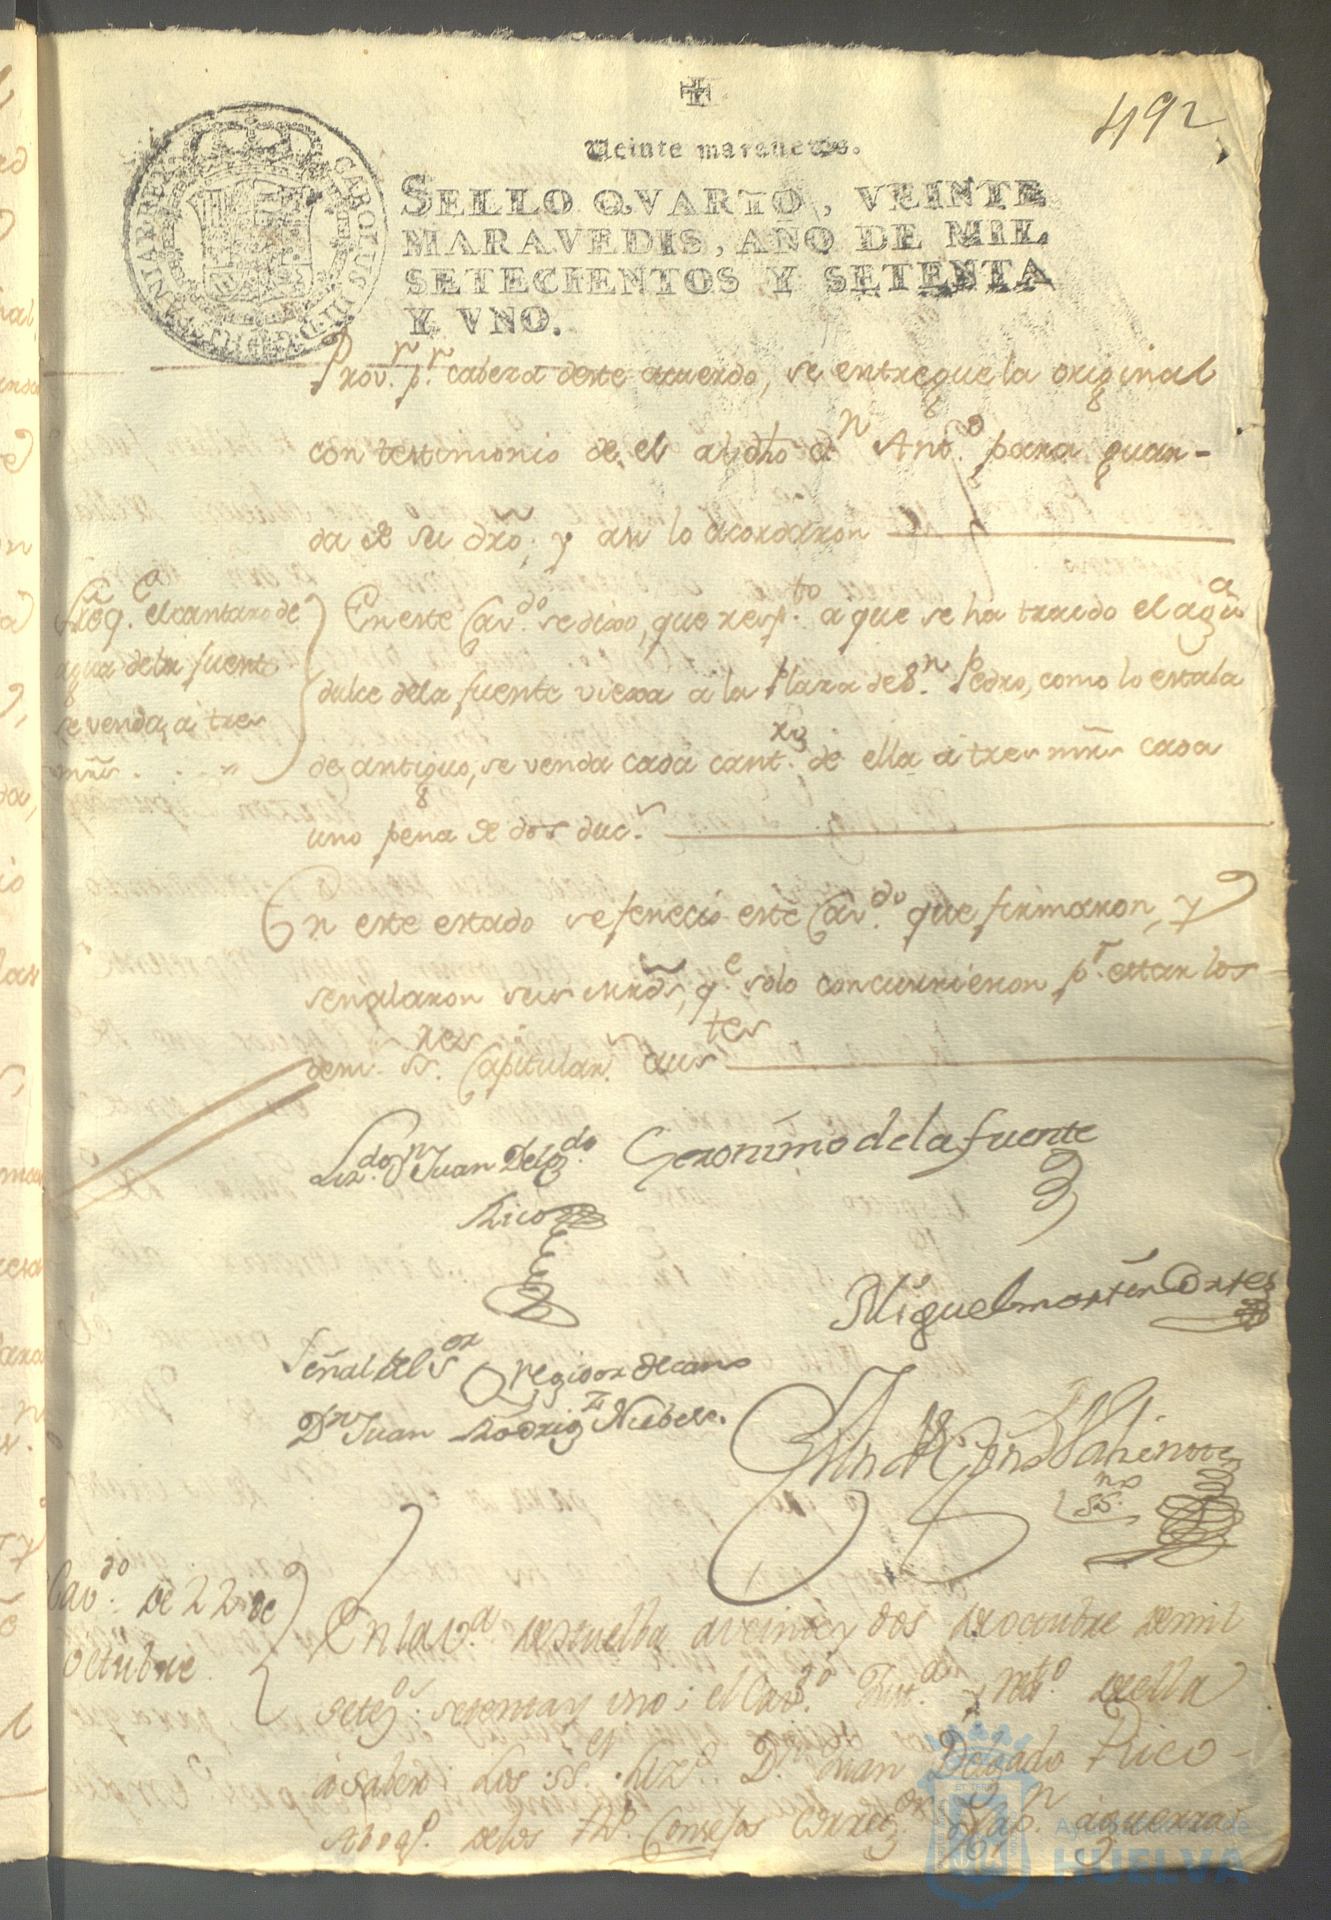 492
Veinte maravedis.
SELLO QVARTO, VEINTE
MARAVEDIS, AÑO DE MIL
SETECIENTOS Y SETENTA
Y VNO.
CAROLUS III D. G. HISPANIAR REX
Prov.n p.r cabeza deste acuerdo, se entregue la original
con testimonio de el al dho d.n Ant.o para guar-
da de su dro; y asi lo acordaron
Sre q.e el cantaro de
agua dela fuente
se venda a tres
mrs.
En este Cav.do se dixo, que resp.to a que se ha traido el agua
dulce dela fuente viexa a la Plaza de S.n Pedro, como lo estaba
de antiguo, se venda cada cant.ro de ella a tres mrs cada
uno pena de dos duc.s
En este estado se feneció este Cav.do que firmaron, y
señalaron seis mrds, q.e solo concurrieron p.r estar los
dem.s SS.res Capitular.s aus.tes
Liz.do d.n Juan Delg.do
Rico
Geronimo de la fuente
Miguel martin Cortes
Señal del S.or regidor decano
D.n Juan Rodrig.z Niebla.
Cav.do de 22 de
octubre
En la v.a de Huelba a veinte y dos de octubre de mil
setez.s setenta y uno; el Cav.do Just.a y Reg.to de ella
a saber: Los SS.es Liz.do D.n Juan Delgado Rico
Abog.o de los R.s Consejos Correg.or Cap.n a guerra
Ayuntamiento de
HUELVA